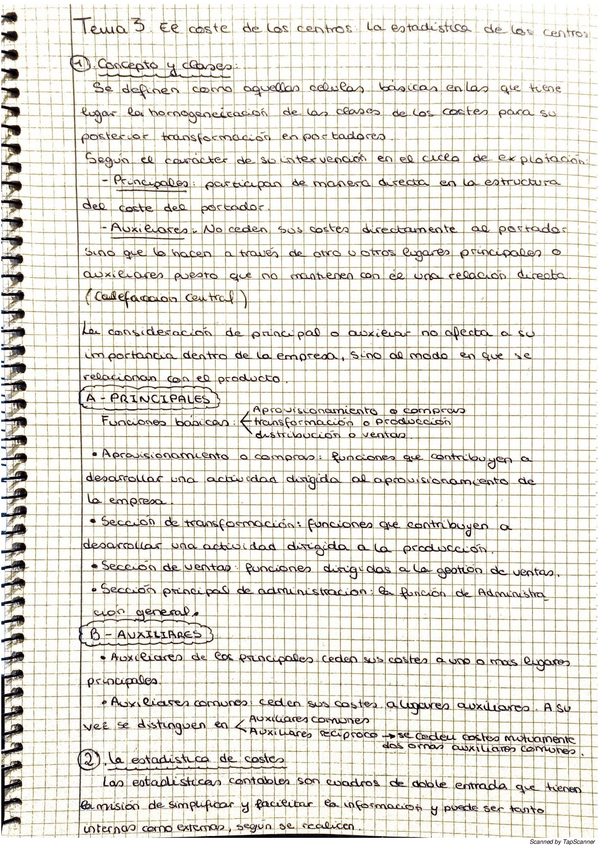 Tema 3. El coste de los centros: la estadística de los centros
1) Concepto y clases:
Se definen como aquellas células básicas en las que tiene
lugar la homogeneización de las clases de los costes para su
posterior transformación en portadores.
Según el carácter de su intervención en el ciclo de explotación:
- Principales: participan de manera directa en la estructura
del coste del portador.
- Auxiliares. No ceden sus costes directamente al portador
sino que lo hacen a través de otro u otros lugares principales o
auxiliares puesto que no mantienen con él una relación directa
(Calefacción central)
La consideración de principal o auxiliar no afecta a su
importancia dentro de la empresa, sino al modo en que se
relacionan con el producto.
A - PRINCIPALES
Funciones básicas: Aprovisionamiento o compras
transformación o producción
distribución o ventas.
• Aprovisionamiento o compras: funciones que contribuyen a
desarrollar una actividad dirigida al aprovisionamiento de
la empresa.
• Sección de transformación: funciones que contribuyen a
desarrollar una actividad dirigida a la producción.
• Sección de ventas: funciones dirigidas a la gestión de ventas.
• Sección principal de administración: la función de Administra
ción general.
B - AUXILIARES
• Auxiliares de los principales ceden sus costes a uno o mas lugares
principales.
• Auxiliares comunes ceden sus costes a lugares auxiliares. A su
vez se distinguen en Auxiliares comunes
Auxiliares recíproco → se ceden costes mutuamente
dos o mas auxiliares comunes.
2) La estadística de costes
Las estadísticas contables son cuadros de doble entrada que tienen
la misión de simplificar y facilitar la información y puede ser tanto
internas como externas, según se realicen.
Scanned by TapScanner